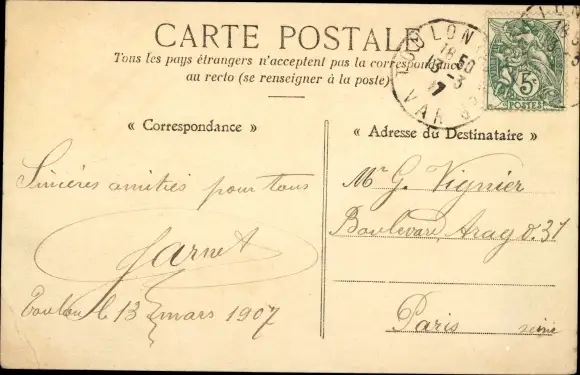 CARTE POSTALE
Tous les pays étrangers n'acceptent pas la correspondance
au recto (se renseigner à la poste)
« Correspondance »
« Adresse du Destinataire »
TOULON
18 50
13 - 3
07
VAR
5c
POSTES
Sincères amitiés pour tous
Garnet
Toulon le 13 mars 1907
Mr G. Vignier
Boulevard Arago. 31
Paris seine